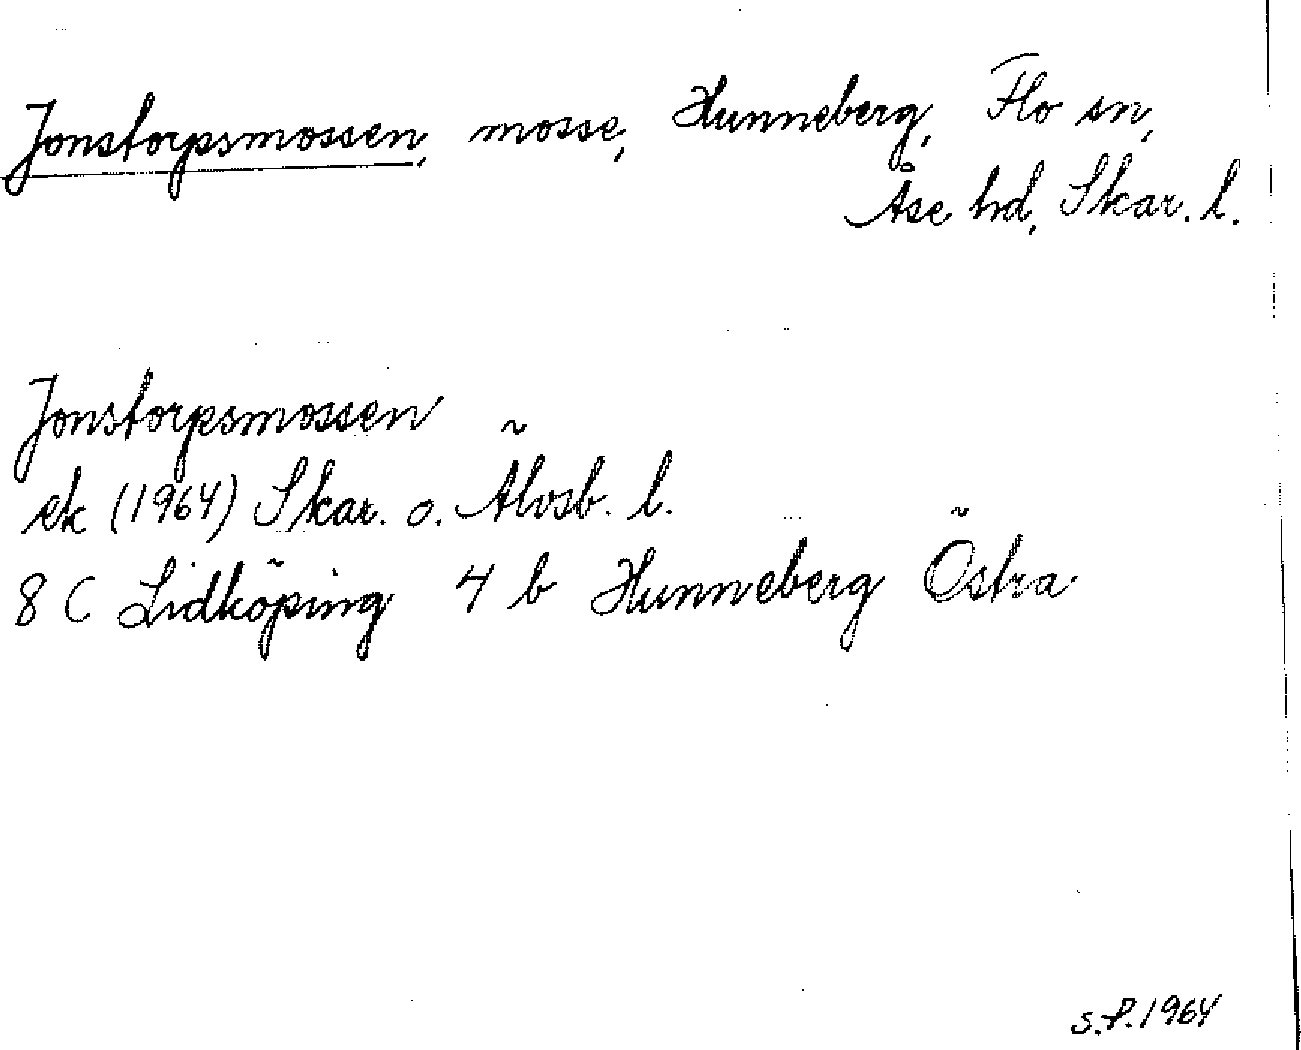 Jonstorpsmossen, mosse, Hunneberg, Flo sn,
Åse hd, Skar. l.
Jonstorpsmossen
ek (1964) Skar. o. Älvsb. l.
8 C Lidköping 4 b Hunneberg Östra
S.P. 1964